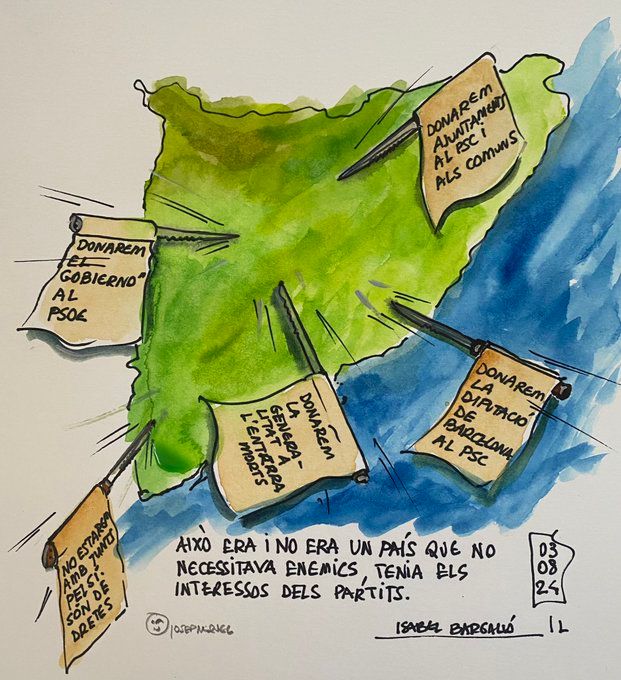 DONAREM
AJUNTAMENTS
AL PSC I
ALS COMUNS
DONAREM
EL
GOBIERNO"
AL
PSOE
DONAREM
LA
GENERA-
LITAT A
L'ENTERRA
MORTS
DONAREM
LA
DIPUTACIÓ
DE
BARCELONA
AL PSC
NO ESTAREM
AMB JUNTS
PEL SÍ.
SÓN DE
DRETES
AIXÒ ERA I NO ERA UN PAÍS QUE NO
NECESSITAVA ENEMICS, TENIA ELS
INTERESSOS DELS PARTITS.
03
08
24
ISABEL BARGALLÓ IL